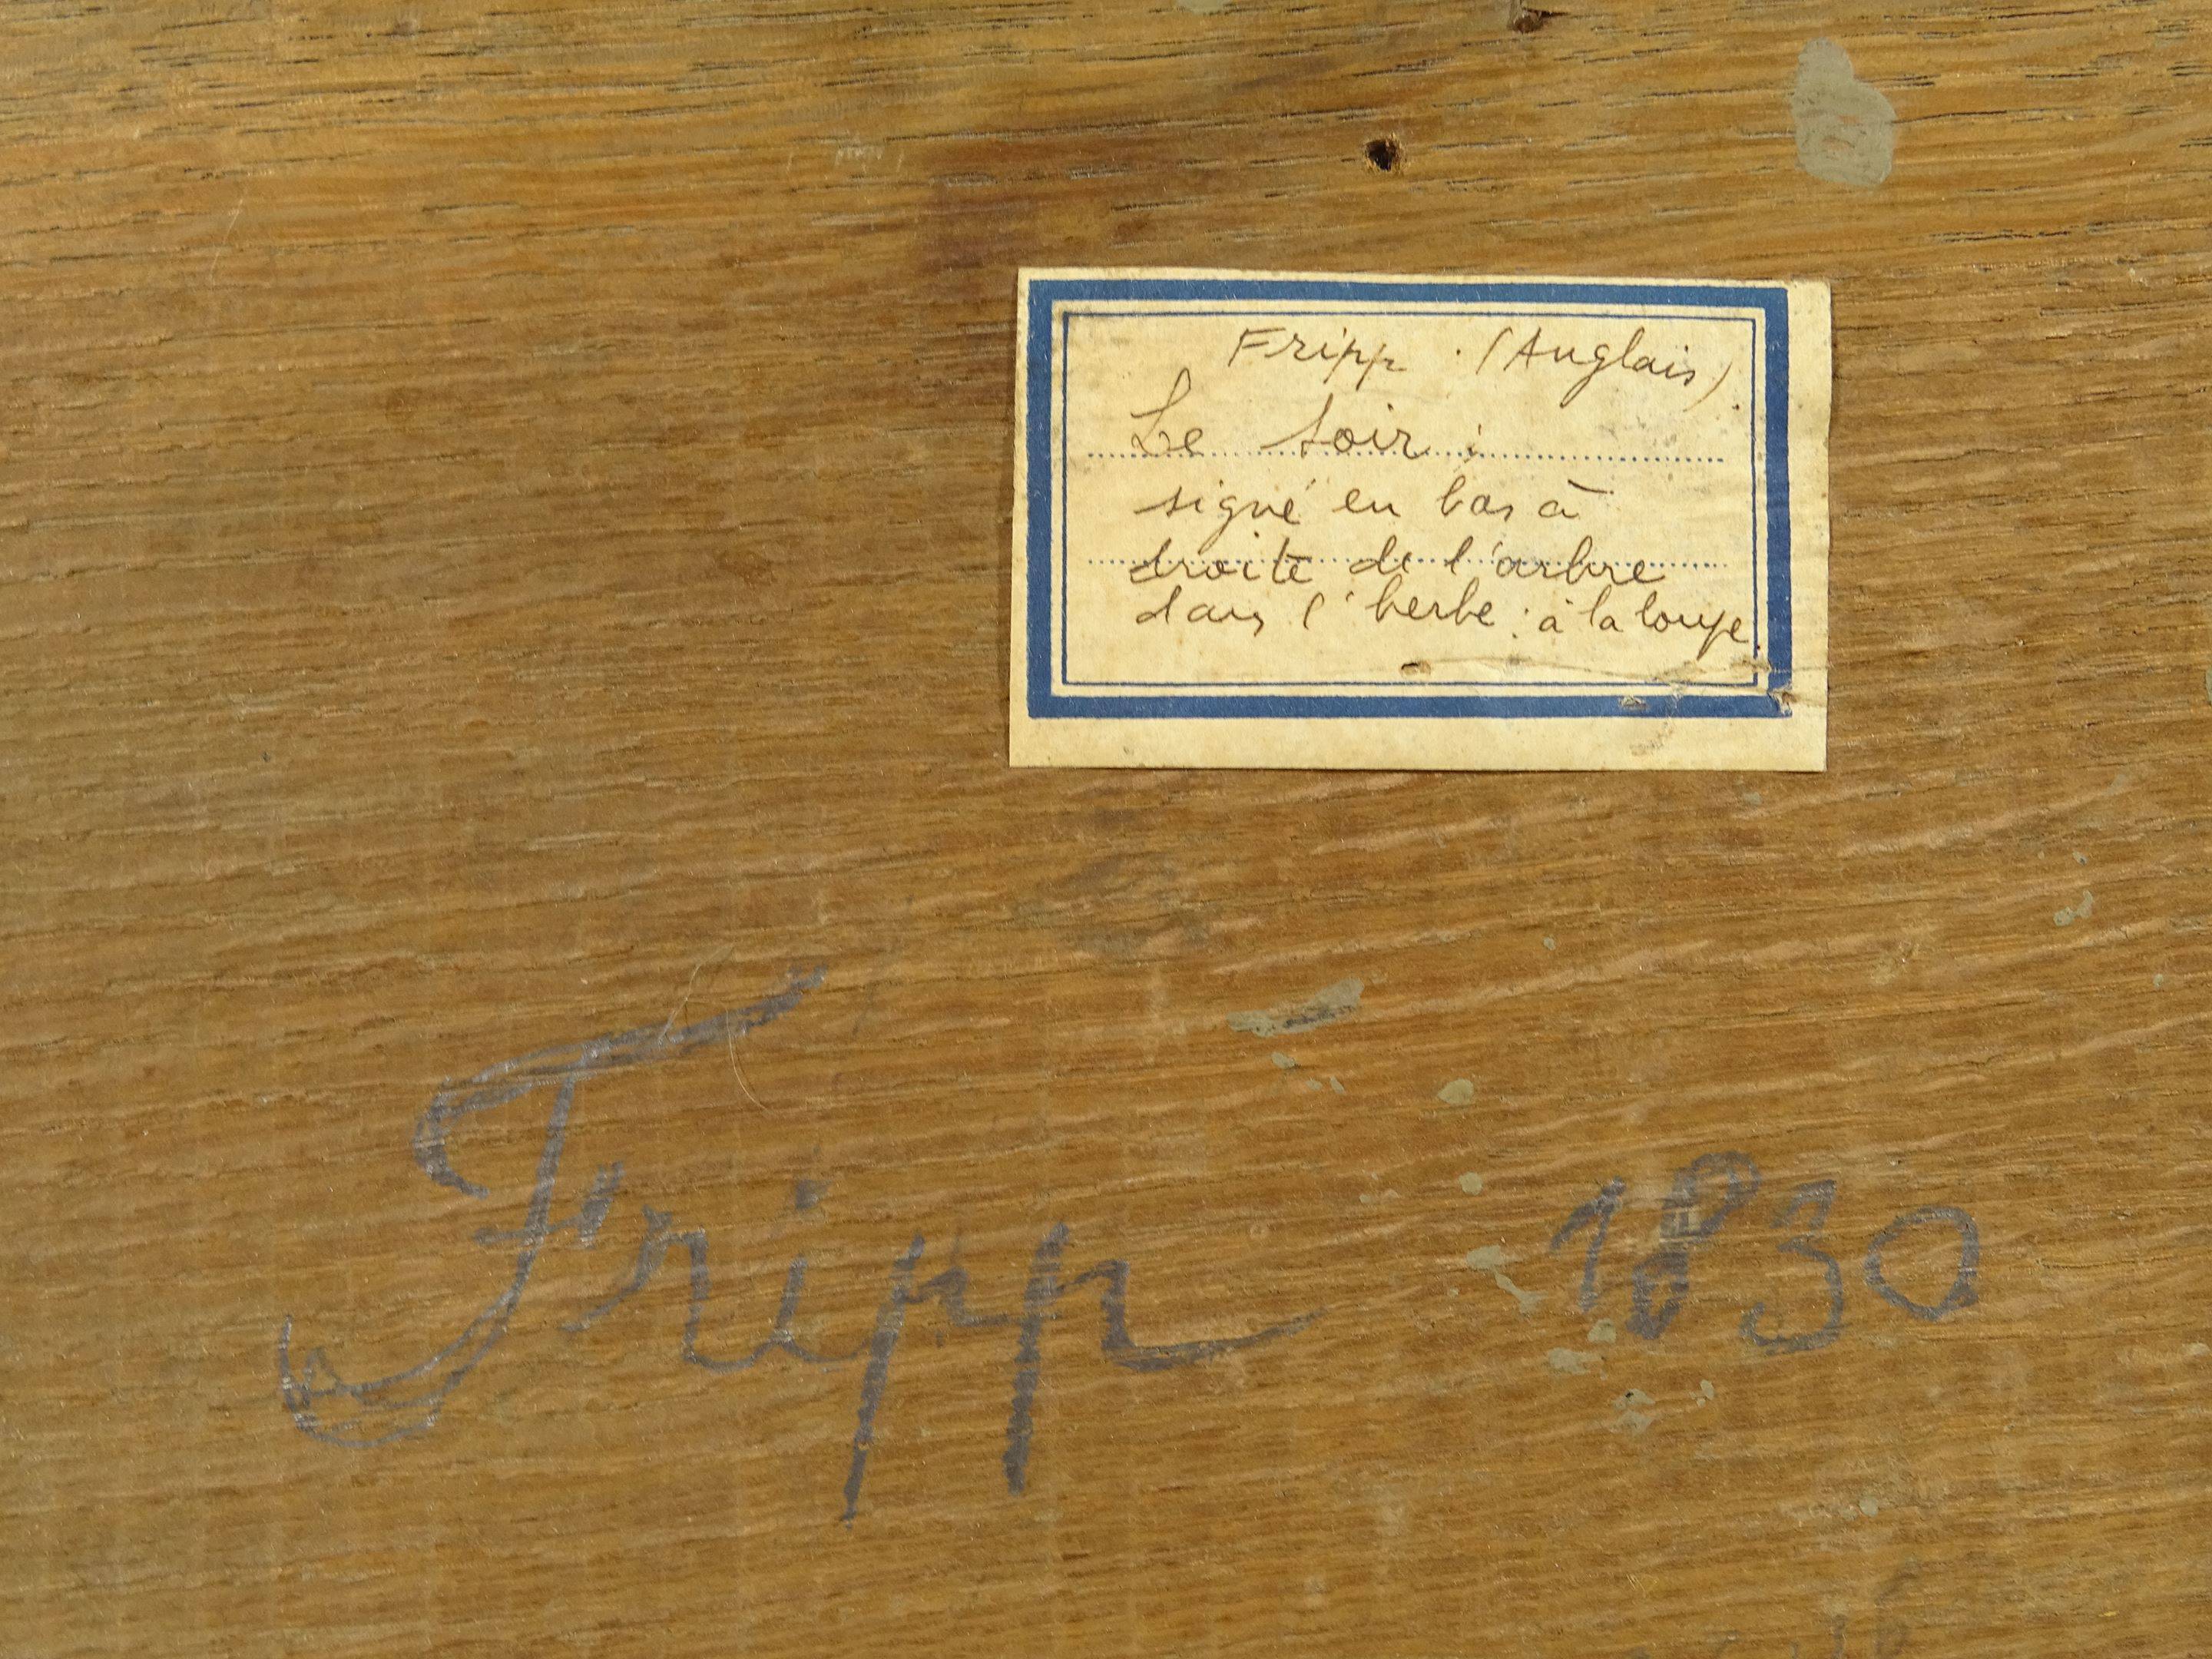 Fripp . (Anglais).
Le Soir :
signé en bas à
droite de l'arbre
dans l'herbe : à la loupe.
Fripp 1830